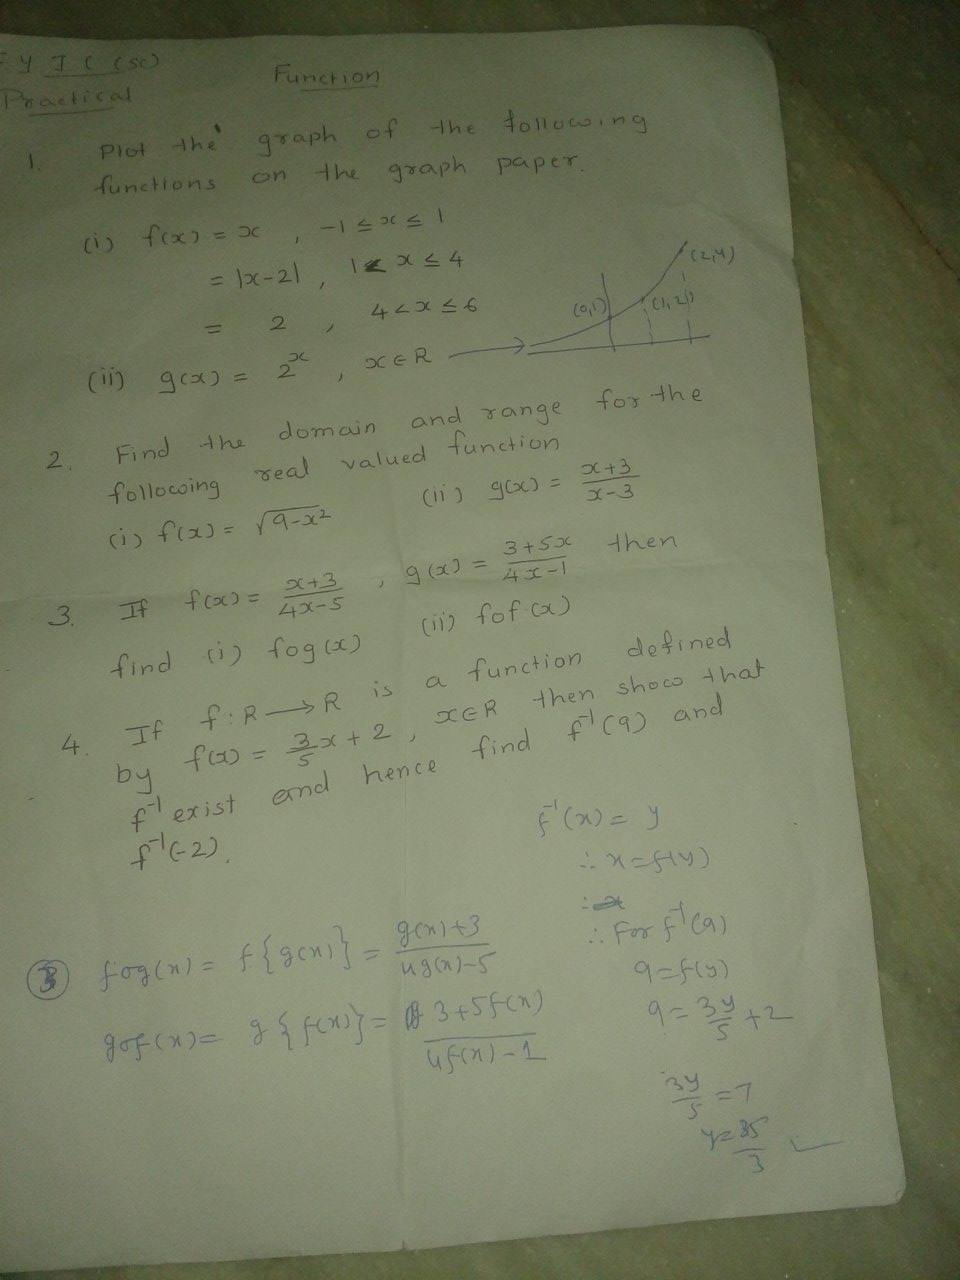 F Y J C (SC)
Practical
Function
1. Plot the graph of the following
functions on the graph paper.
(i) f(x) = x , -1 ≤ x ≤ 1
= |x-2| , 1 < x ≤ 4
= 2 , 4 < x ≤ 6
(ii) g(x) = 2^x , x ∈ R →
(0,1) (1,2) (2,4)
2. Find the domain and range for the
following real valued function
(i) f(x) = √(9-x²) (ii) g(x) = (x+3)/(x-3)
3. If f(x) = (x+3)/(4x-5) , g(x) = (3+5x)/(4x-1) then
find (i) fog(x) (ii) fof(x)
4. If f : R → R is a function defined
by f(x) = 3/5 x + 2 , x ∈ R then show that
f⁻¹ exist and hence find f⁻¹(9) and
f⁻¹(-2).
f⁻¹(x) = y
∴ x = f(y)
∴ For f⁻¹(9)
9 = f(y)
9 = 3y/5 + 2
3y/5 = 7
y = 35/3
③ fog(x) = f{g(x)} = (g(x)+3)/(4g(x)-5)
gof(x) = g{f(x)} = (3+5f(x))/(4f(x)-1)